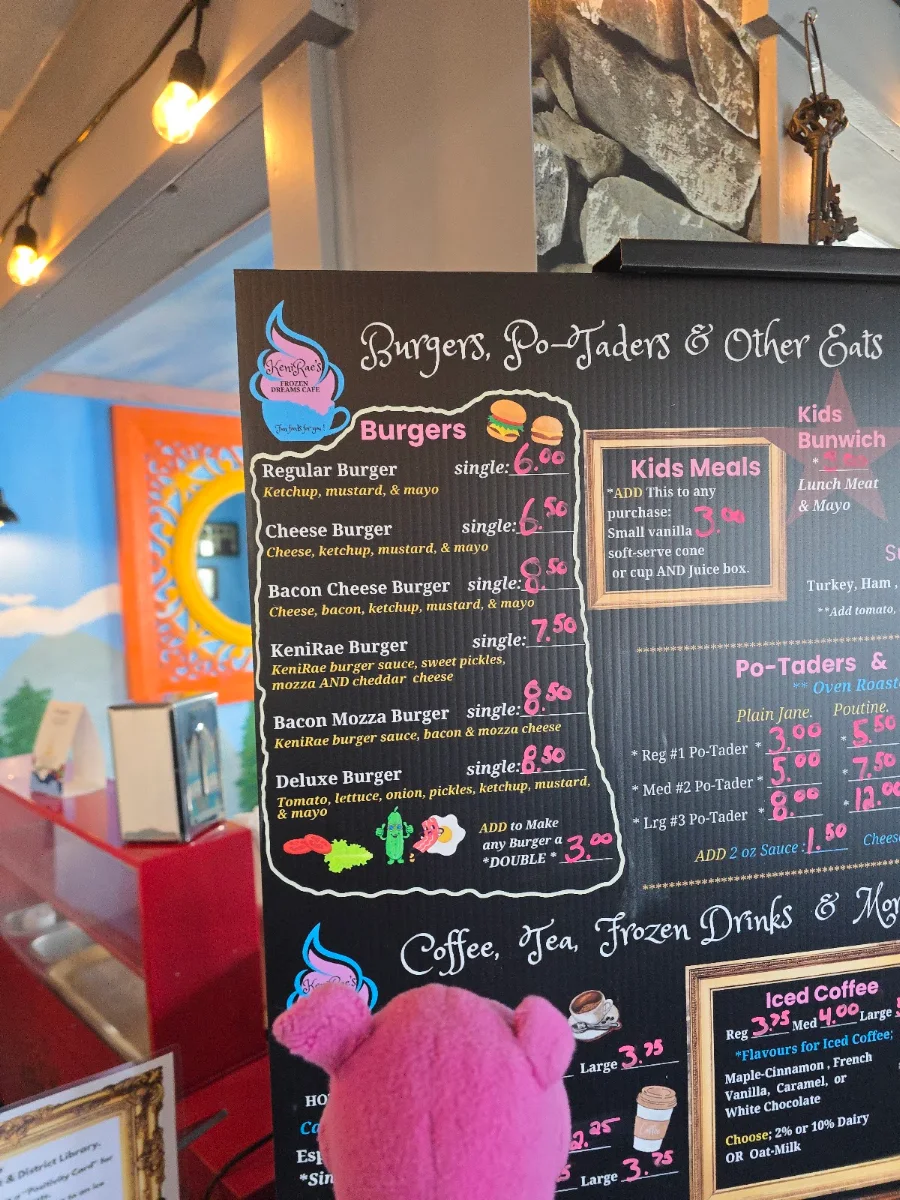 Burgers, Po-Taders & Other Eats
KeniRae's
FROZEN
DREAMS CAFE
Fun foods for you!
Burgers
Regular Burger single: 6.00
Ketchup, mustard, & mayo
Cheese Burger single: 6.50
Cheese, ketchup, mustard, & mayo
Bacon Cheese Burger single: 8.50
Cheese, bacon, ketchup, mustard, & mayo
KeniRae Burger single: 7.50
KeniRae burger sauce, sweet pickles,
mozza AND cheddar cheese
Bacon Mozza Burger single: 8.50
KeniRae burger sauce, bacon & mozza cheese
Deluxe Burger single: 8.50
Tomato, lettuce, onion, pickles, ketchup, mustard,
& mayo
ADD to Make
any Burger a
*DOUBLE * 3.00
Kids Meals
*ADD This to any
purchase:
Small vanilla 3.00
soft-serve cone
or cup AND Juice box.
Kids
Bunwich
*
Lunch Meat
& Mayo
Turkey, Ham ,
**Add tomato,
Po-Taders &
** Oven Roast
Plain Jane. Poutine.
* Reg #1 Po-Tader * 3.00 * 5.50
* Med #2 Po-Tader * 5.00 * 7.50
* Lrg #3 Po-Tader * 8.00 * 12.00
ADD 2 oz Sauce : 1.50 Chees
Coffee, Tea, Frozen Drinks & Mor
KeniRae's
Large 3.75
HO
Ca
Esp
*Sin
2.25
Large 3.75
Iced Coffee
Reg 3.75 Med 4.00 Large
*Flavours for Iced Coffee;
Maple-Cinnamon , French
Vanilla, Caramel, or
White Chocolate
Choose; 2% or 10% Dairy
OR Oat-Milk
& District Library.
"Positivity Card" for